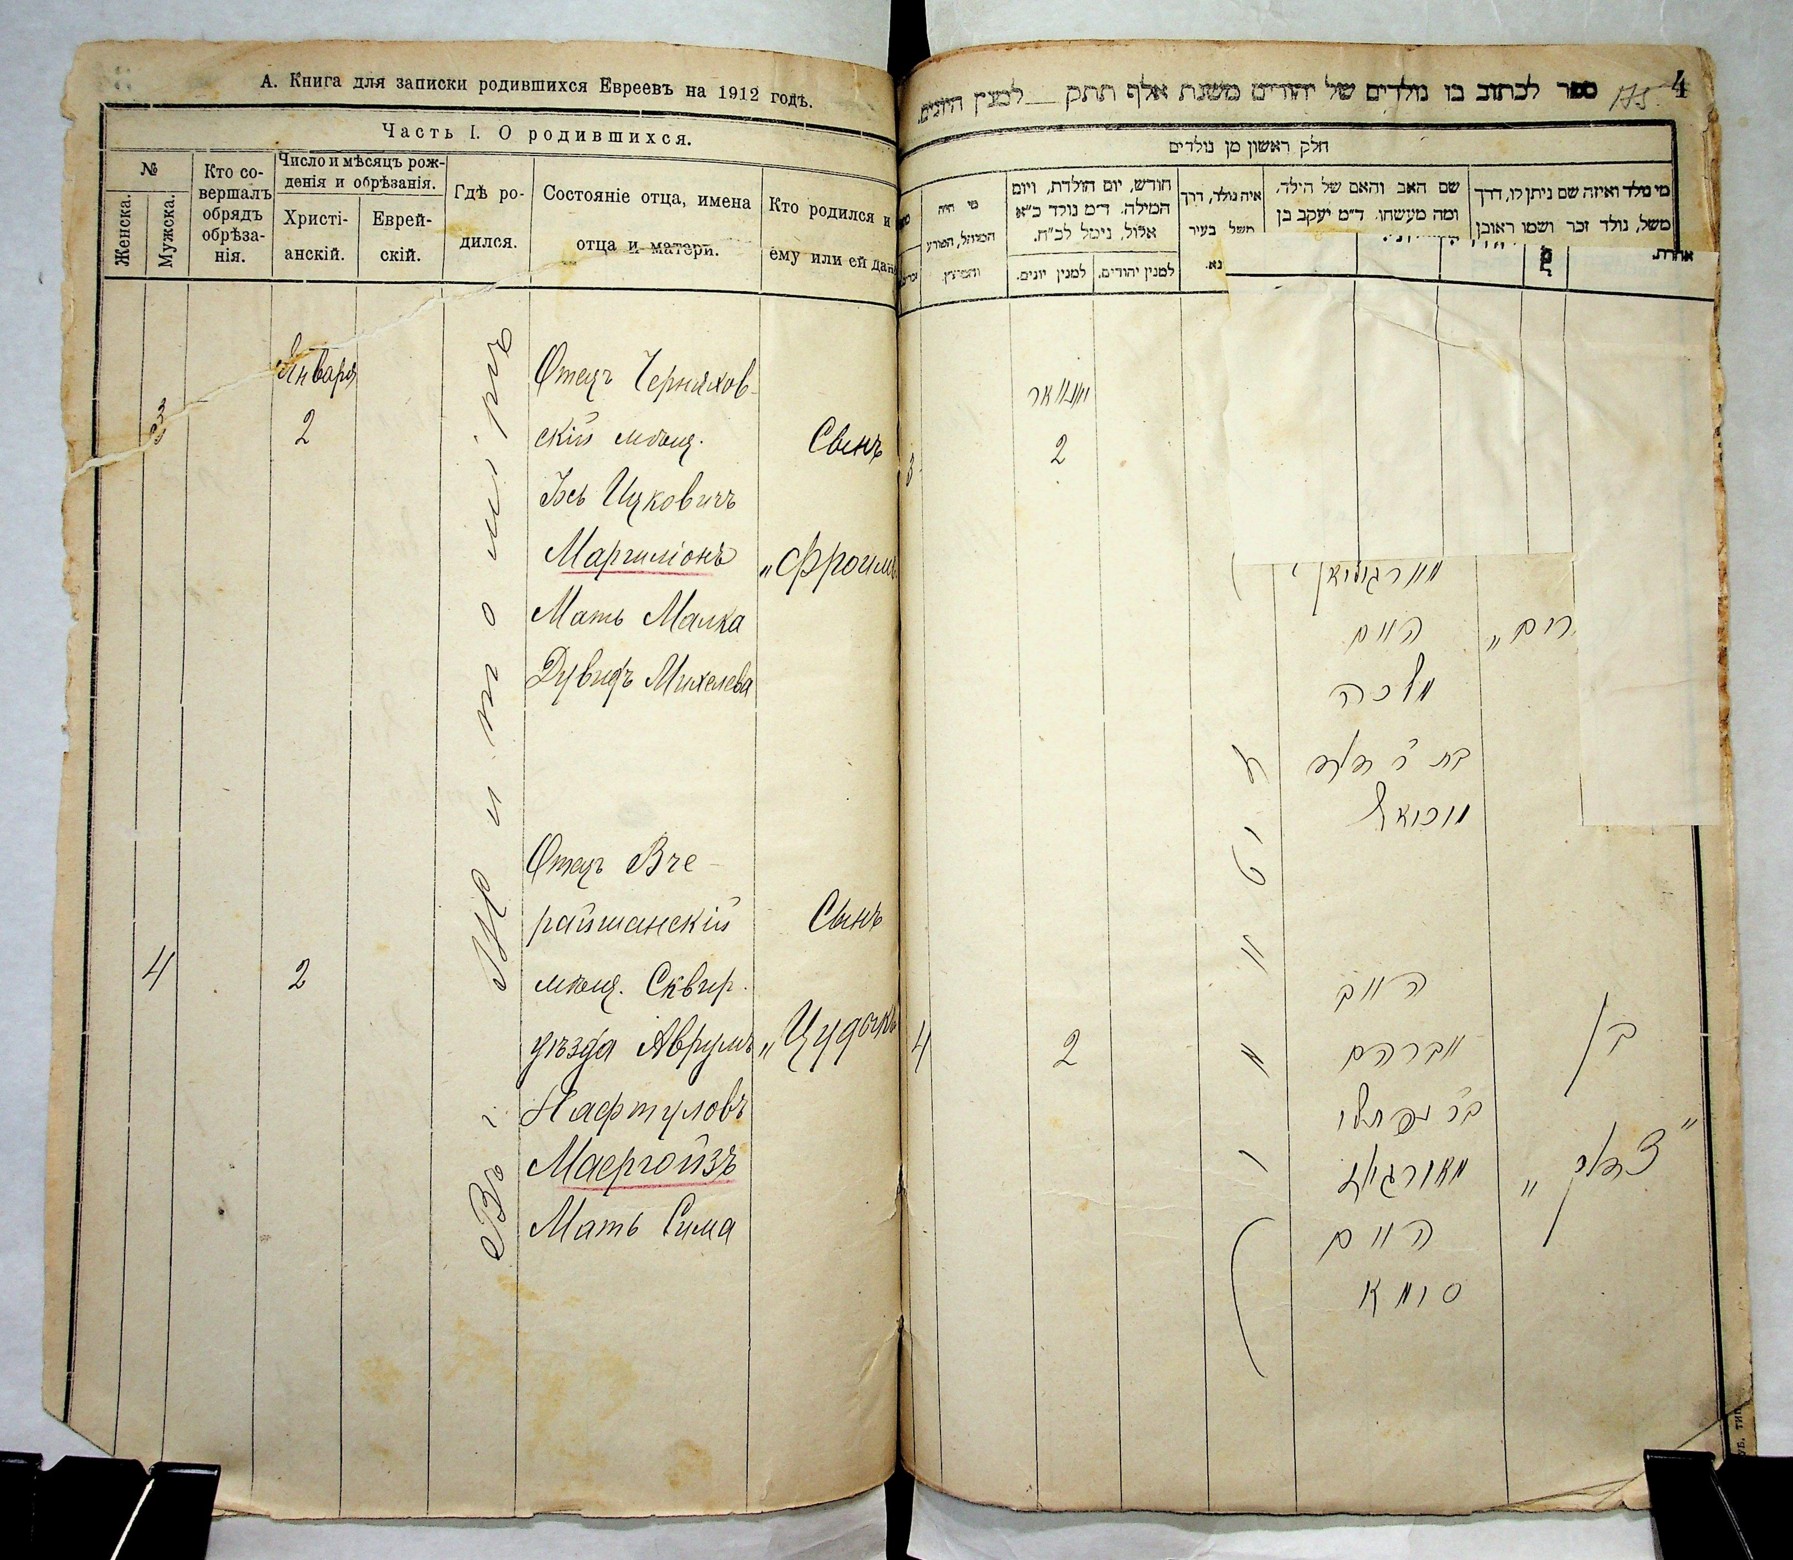 А. Книга для записки родившихся Евреевъ на 1912 годъ.
Часть I. О родившихся.
№
Женска.
Мужска.
Кто со-
вершалъ
обрядъ
обрѣза-
нія.
Число и мѣсяцъ рож-
денія и обрѣзанія.
Христі-
анскій.
Еврей-
скій.
Гдѣ ро-
дился.
Состояніе отца, имена
отца и матери.
Кто родился и
ему или ей дан
Января
3
2
Въ г. Житомірѣ
Отецъ Черняхов-
скій мѣщ.
Іось Ицковичъ
Маргиліонъ
Мать Малка
Дувидъ Михелева
Сынъ
„Фроимъ
4
2
Отецъ Вче-
райшанскій
мѣщ. Сквир.
уѣзда Аврумъ
Нафтуловъ
Маергойзъ
Мать Сима
Сынъ
„Цудыкъ
4
ספר לכתוב בו נולדים של יהודים משנת אלף תתק __ למנין היונים.
חלק ראשון מן נולדים
מי נולד ואיזה שם ניתן לו, דרך
משל, נולד זכר ושמו ראובן
שם האב והאם של הילד,
ומה מעשהו. ד״מ יעקב בן
איה נולד, דרך
משל בעיר
נא.
חודש, יום הולדת, ויום
המילה. ד״מ נולד כ״א
אלול, נימל לכ״ח.
למנין יהודים.
למנין יונים.
מי היה
המוהל, הפורע
והמוצץ.
אחרת.
יאנואר
3
2
מארגוליאן
האם
מלכה
בת ר׳
מיכאל
4
2
האב
אברהם
ב״ר נפתלי
האם
סימא
בן